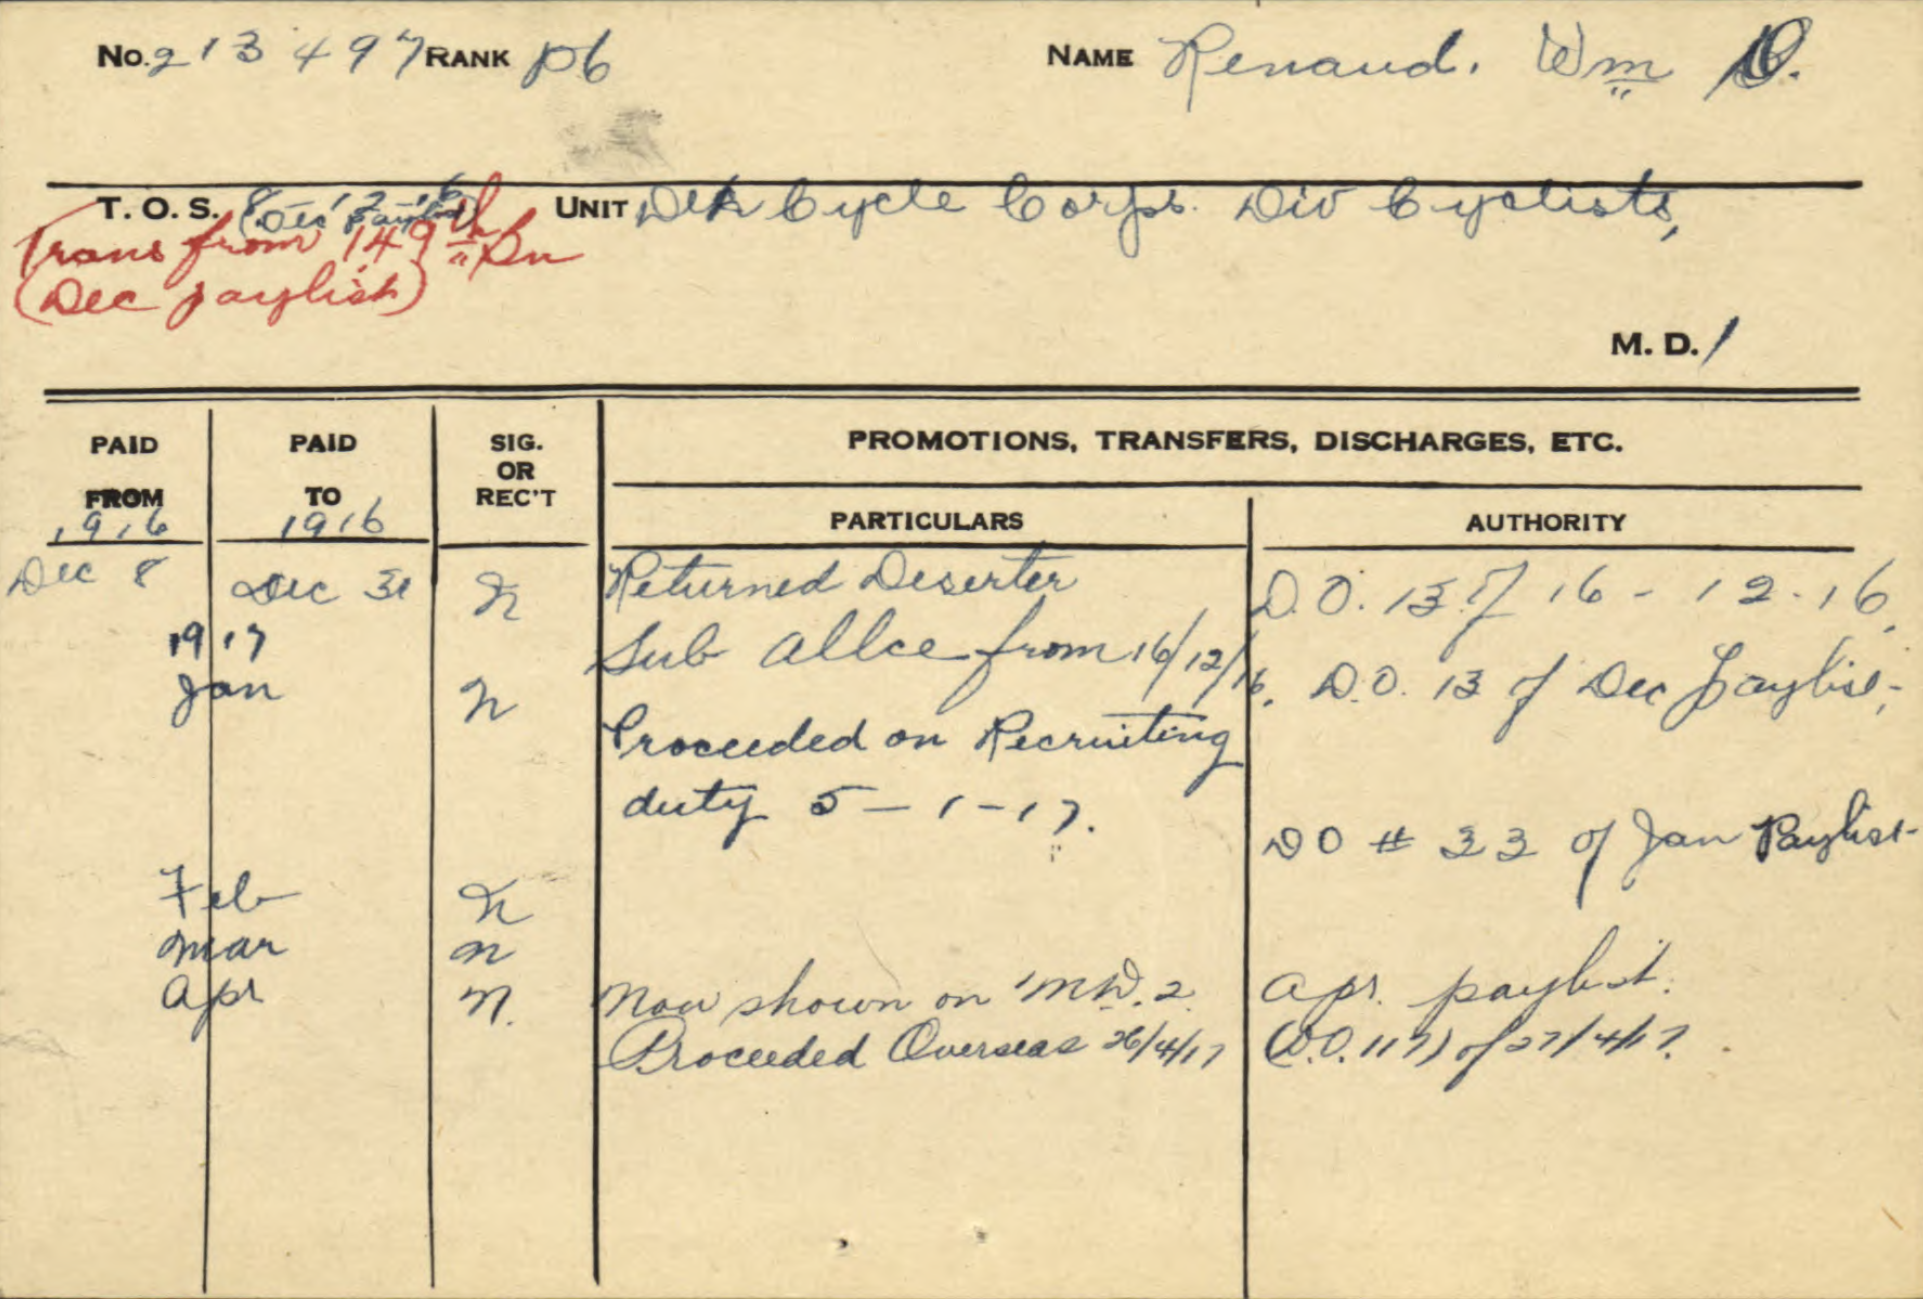 No. 213497 RANK Pte NAME Renaud. Wm O.
T. O. S. 8-12-16 UNIT Cycle Corps. Div Cyclists,
(Dec paylist)
Trans from 149th Bn
(Dec paylist)
M. D. 1
PAID FROM 1916 PAID TO 1916 SIG. OR REC'T PROMOTIONS, TRANSFERS, DISCHARGES, ETC.
PARTICULARS AUTHORITY
Dec 8 Dec 31 N Returned Deserter D.O. 13 of 16-12-16.
1917 Sub Allce from 16/12/16. D.O. 13 of Dec Paylist.
Jan N Proceeded on Recruiting
duty 5-1-17. DO # 33 of Jan Paylist
Feb N
Mar N
Apr N. Now shown on M.D. 2 Apr. paylist.
Proceeded Overseas 26/4/17 (D.O. 117) of 27/4/17.